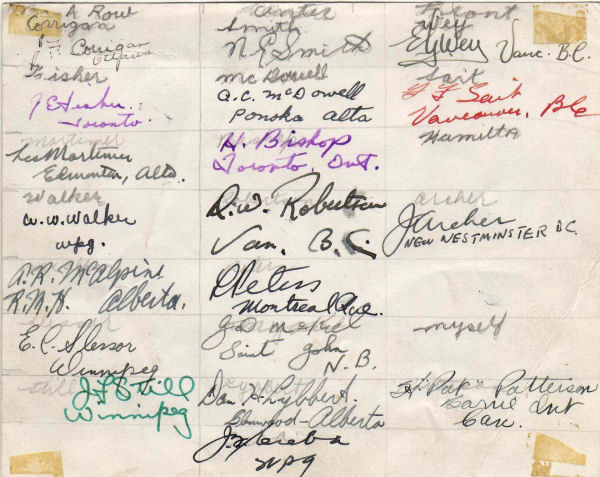 A Row
Corrigan
J F Corrigan
Ottawa
Fisher
J E Fisher.
Toronto.
mortimer
Les Mortimer
Edmonton, Alta.
Walker
W. W. Walker
wpg.
A. R. McAlpine
R.N.H. Alberta.
E. C. Slessor
Winnipeg
Still
J F Still
Winnipeg
Center
Smith
N. E. Smith
McDowell
A. C. McDowell
Ponoka alta
H. Bishop
Toronto, Ont.
R. W. Robertson
Van. B. C.
Peters
Montreal Que.
Saint John
N. B.
Dan H Lybbert.
Glenwood-Alberta
wpg
Front
Wey
E J Wey Vanc. B.C.
Sait
F F Sait
Vancouver, B.C.
Hamilton
archer
J Archer
NEW WESTMINSTER B.C.
myself
"Pat" Patterson
Barrie Ont
Can.